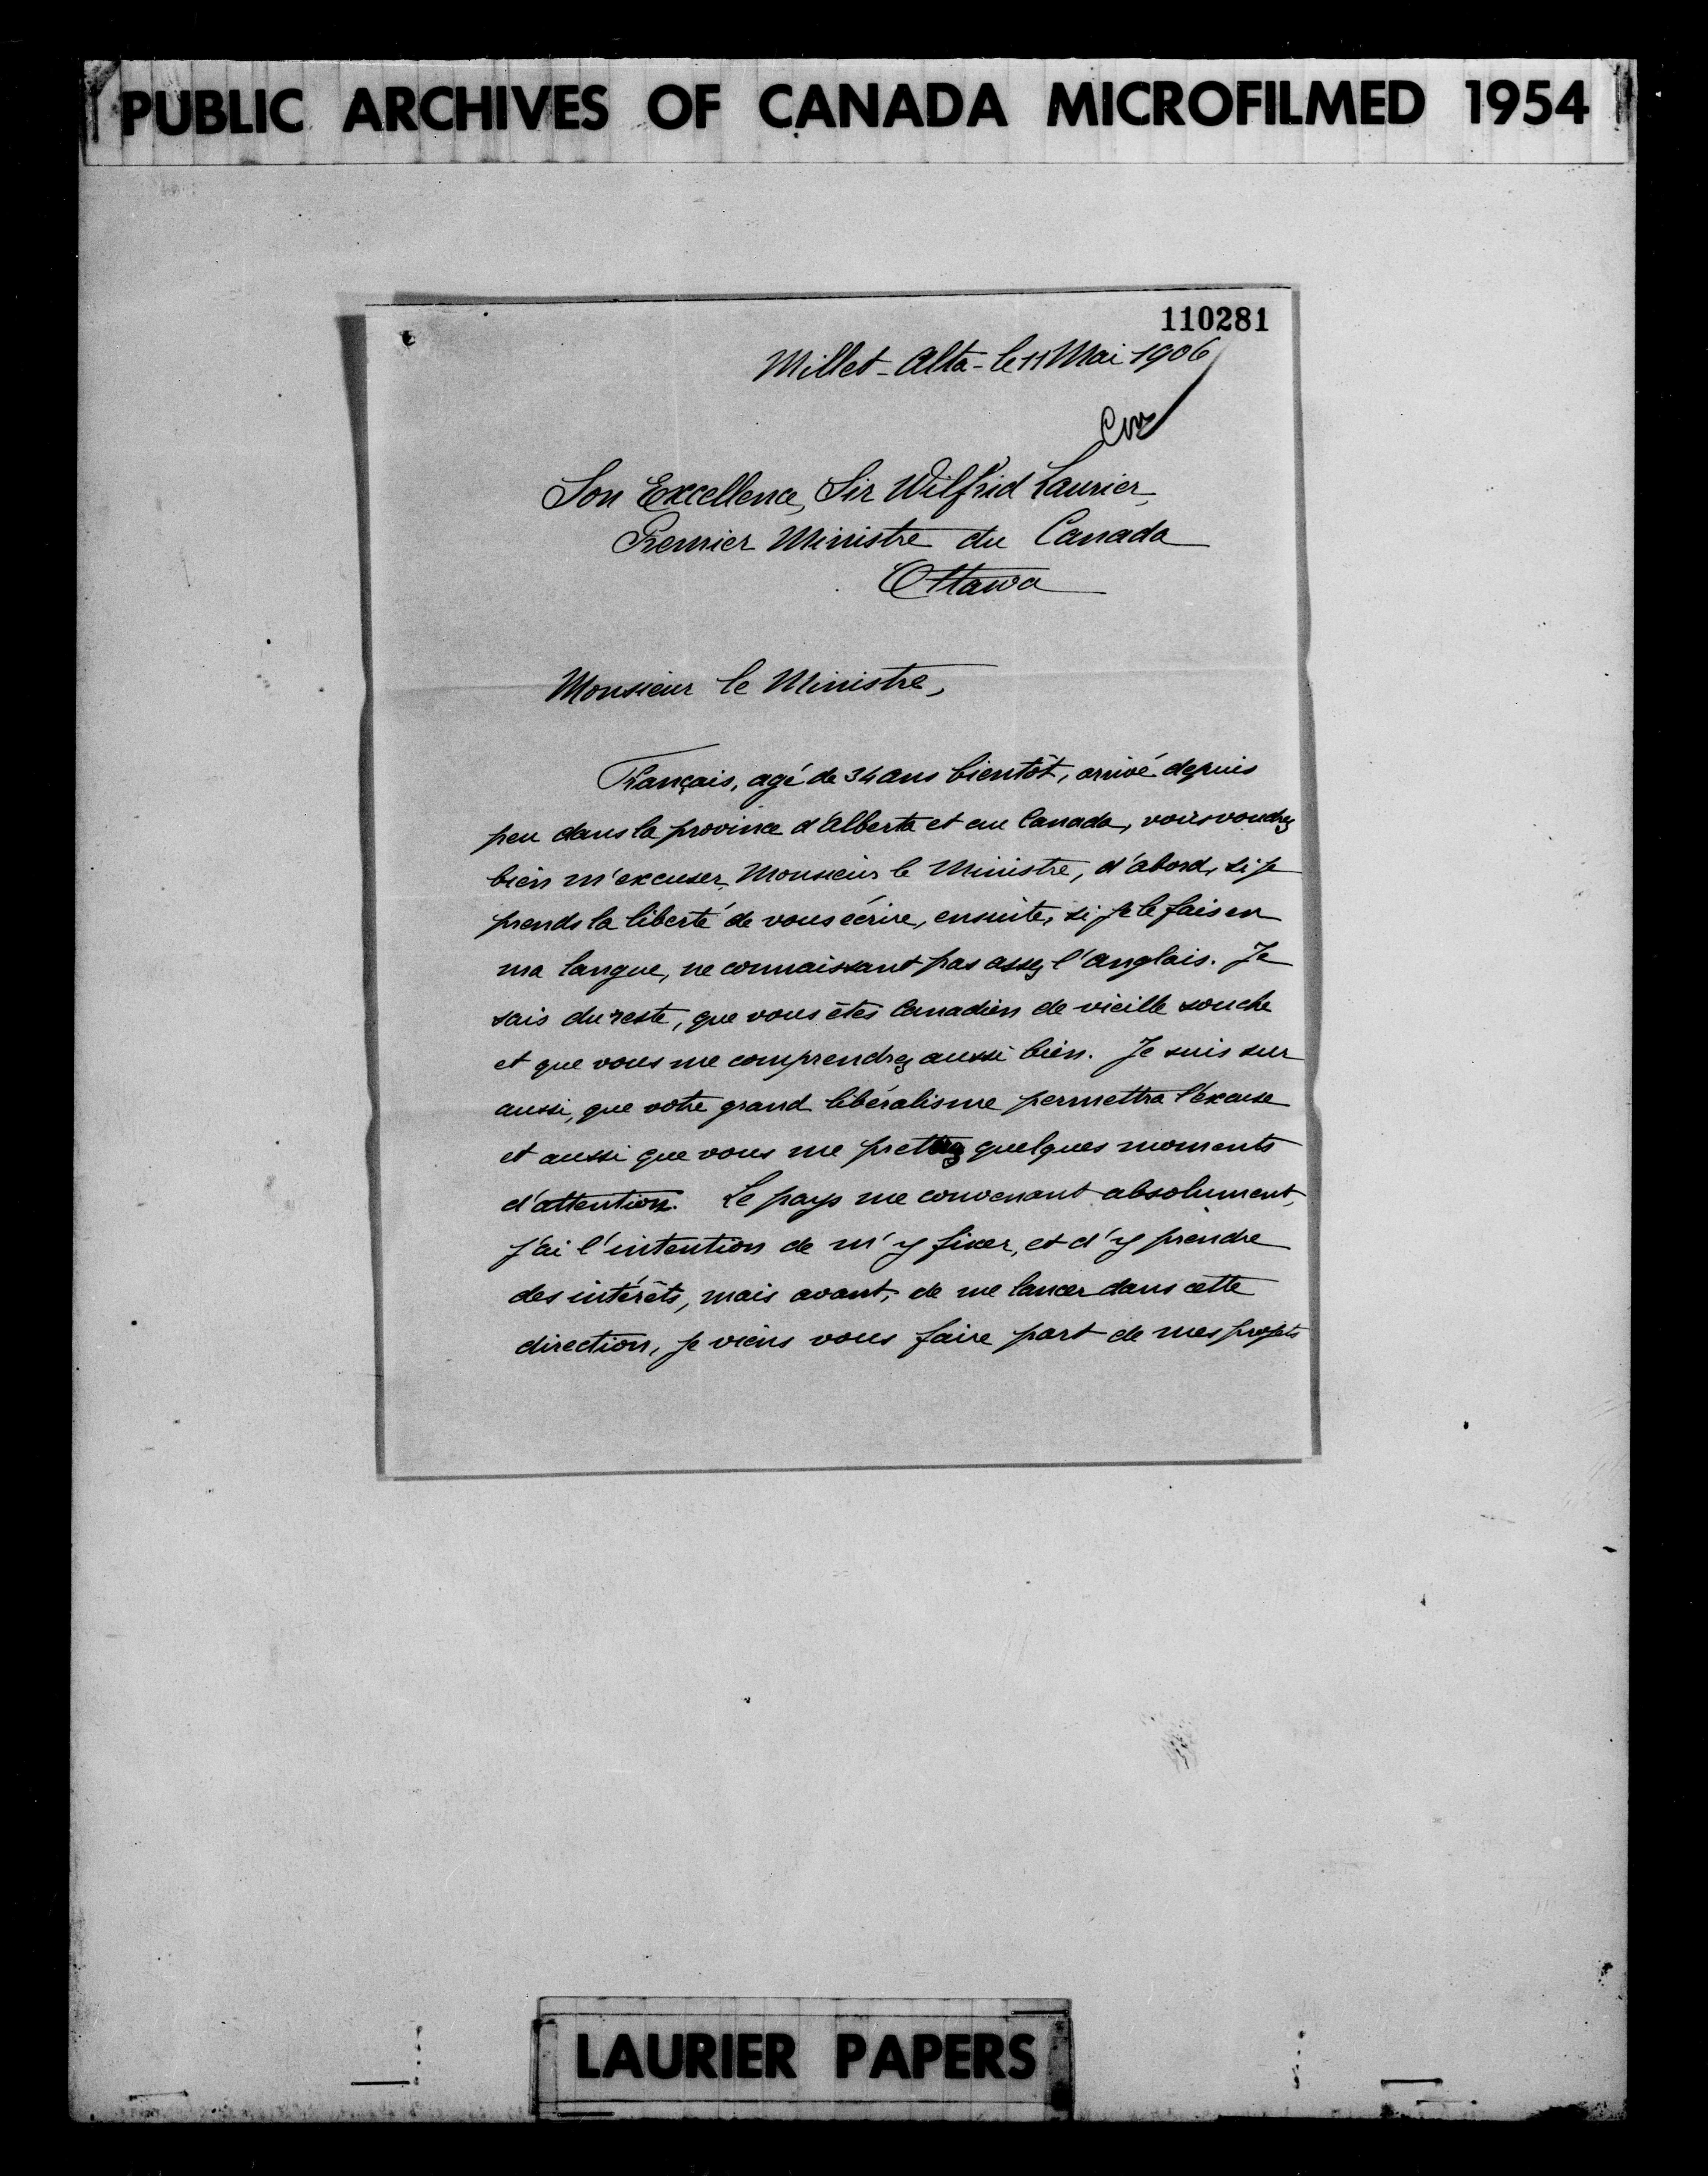 PUBLIC ARCHIVES OF CANADA MICROFILMED 1954
110281
Millet - Alta - le 11 Mai 1906
Son Excellence, Sir Wilfrid Laurier,
Premier Ministre du Canada
Ottawa
Monsieur le Ministre,
Français, agé de 34 ans bientôt, arrivé depuis
peu dans la province d'Alberta et au Canada, vous voudrez
bien m'excuser, Monsieur le Ministre, d'abord, si je
prends la liberté de vous écrire, ensuite, si je le fais en
ma langue, ne connaissant pas assez l'anglais. Je
sais du reste, que vous êtes Canadien de vieille souche
et que vous me comprendrez aussi bien. Je suis sur
aussi, que votre grand libéralisme permettra l'excuse
et aussi que vous me quelques moments
d'attention. Le pays me convenant absolument,
j'ai l'intention de m'y fixer, et d'y prendre
des intérêts, mais avant, de me lancer dans cette
direction, je viens vous faire part de mes projets
LAURIER PAPERS